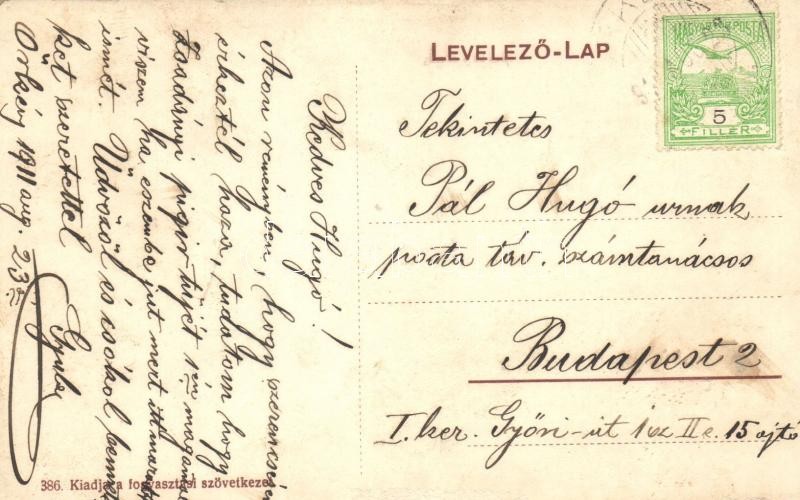 LEVELEZŐ-LAP
MAGYAR KIR. POSTA
5
FILLÉR
Tekintetes
Pál Hugó urnak
posta táv. számtanácsos
Budapest 2
I. ker. Győri-út 15 ajtó
Kedves Hugó!
Azon reményben, hogy szerencsésen
érkeztél haza, tudatom hogy
Zoadványi
viszem ha eszembe jut mert itt maradt
ismét. Üdvözöl és csókol bennet
ket szeretettel
Örkény 1911 aug. 23.
Gyula
386. Kiadja a fogyasztási szövetkezet